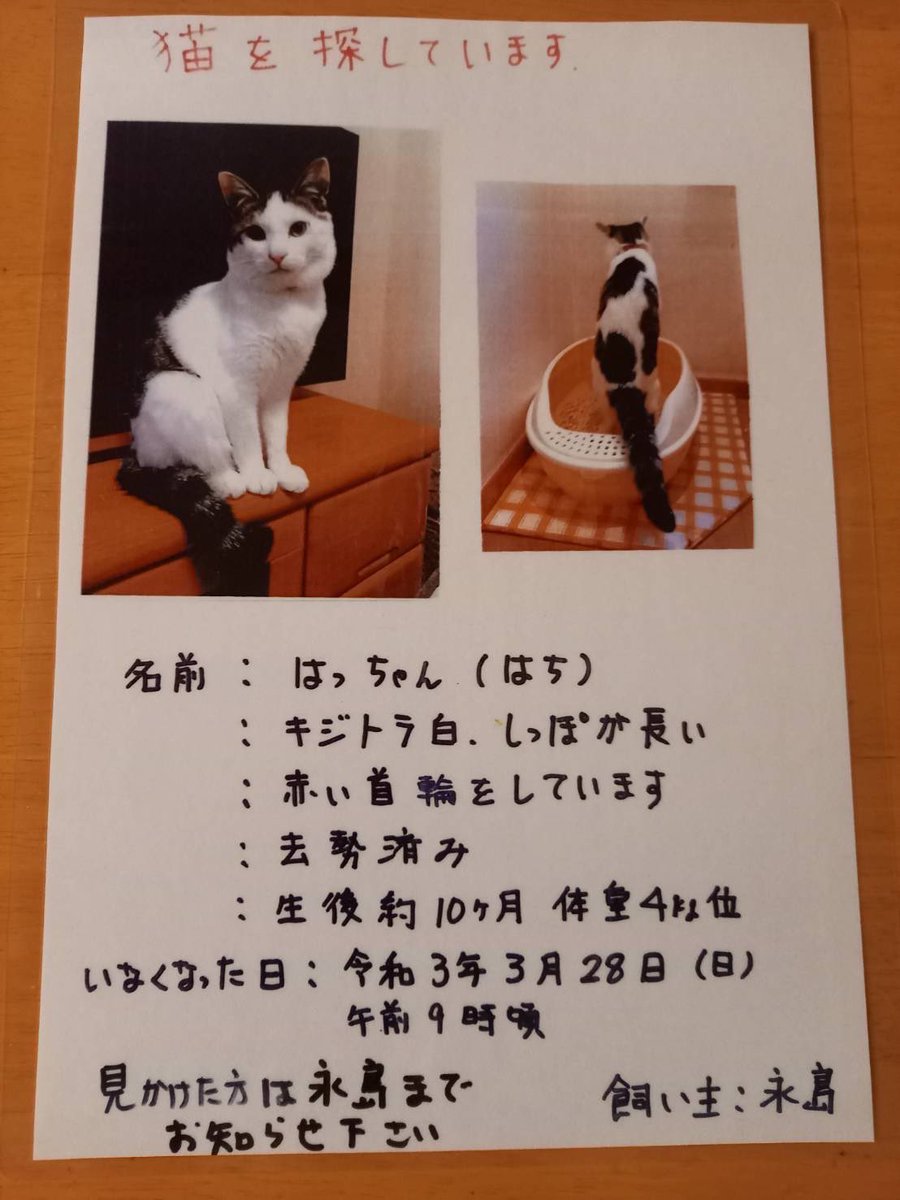 猫を探しています.
名前 : はっちゃん (はち)
: キジトラ白. しっぽが長い
: 赤い首輪をしています
: 去勢済み
: 生後約10ヶ月 体重4kg位
いなくなった日 : 令和3年3月28日 (日)
午前9時頃
見かけた方は永島まで
お知らせ下さい
飼い主 : 永島